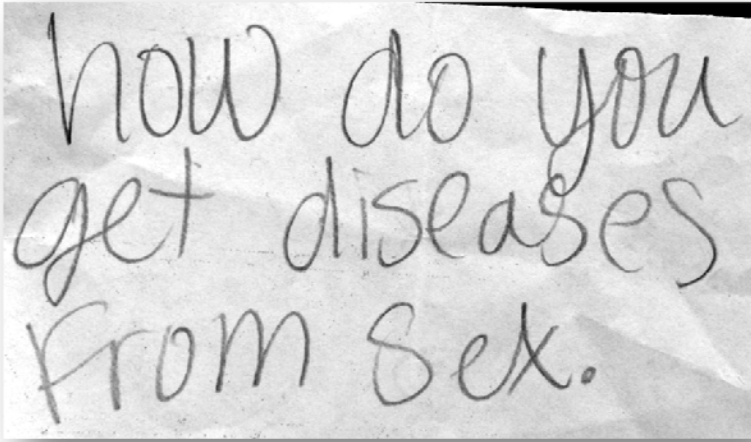 how do you
get diseases
From sex.